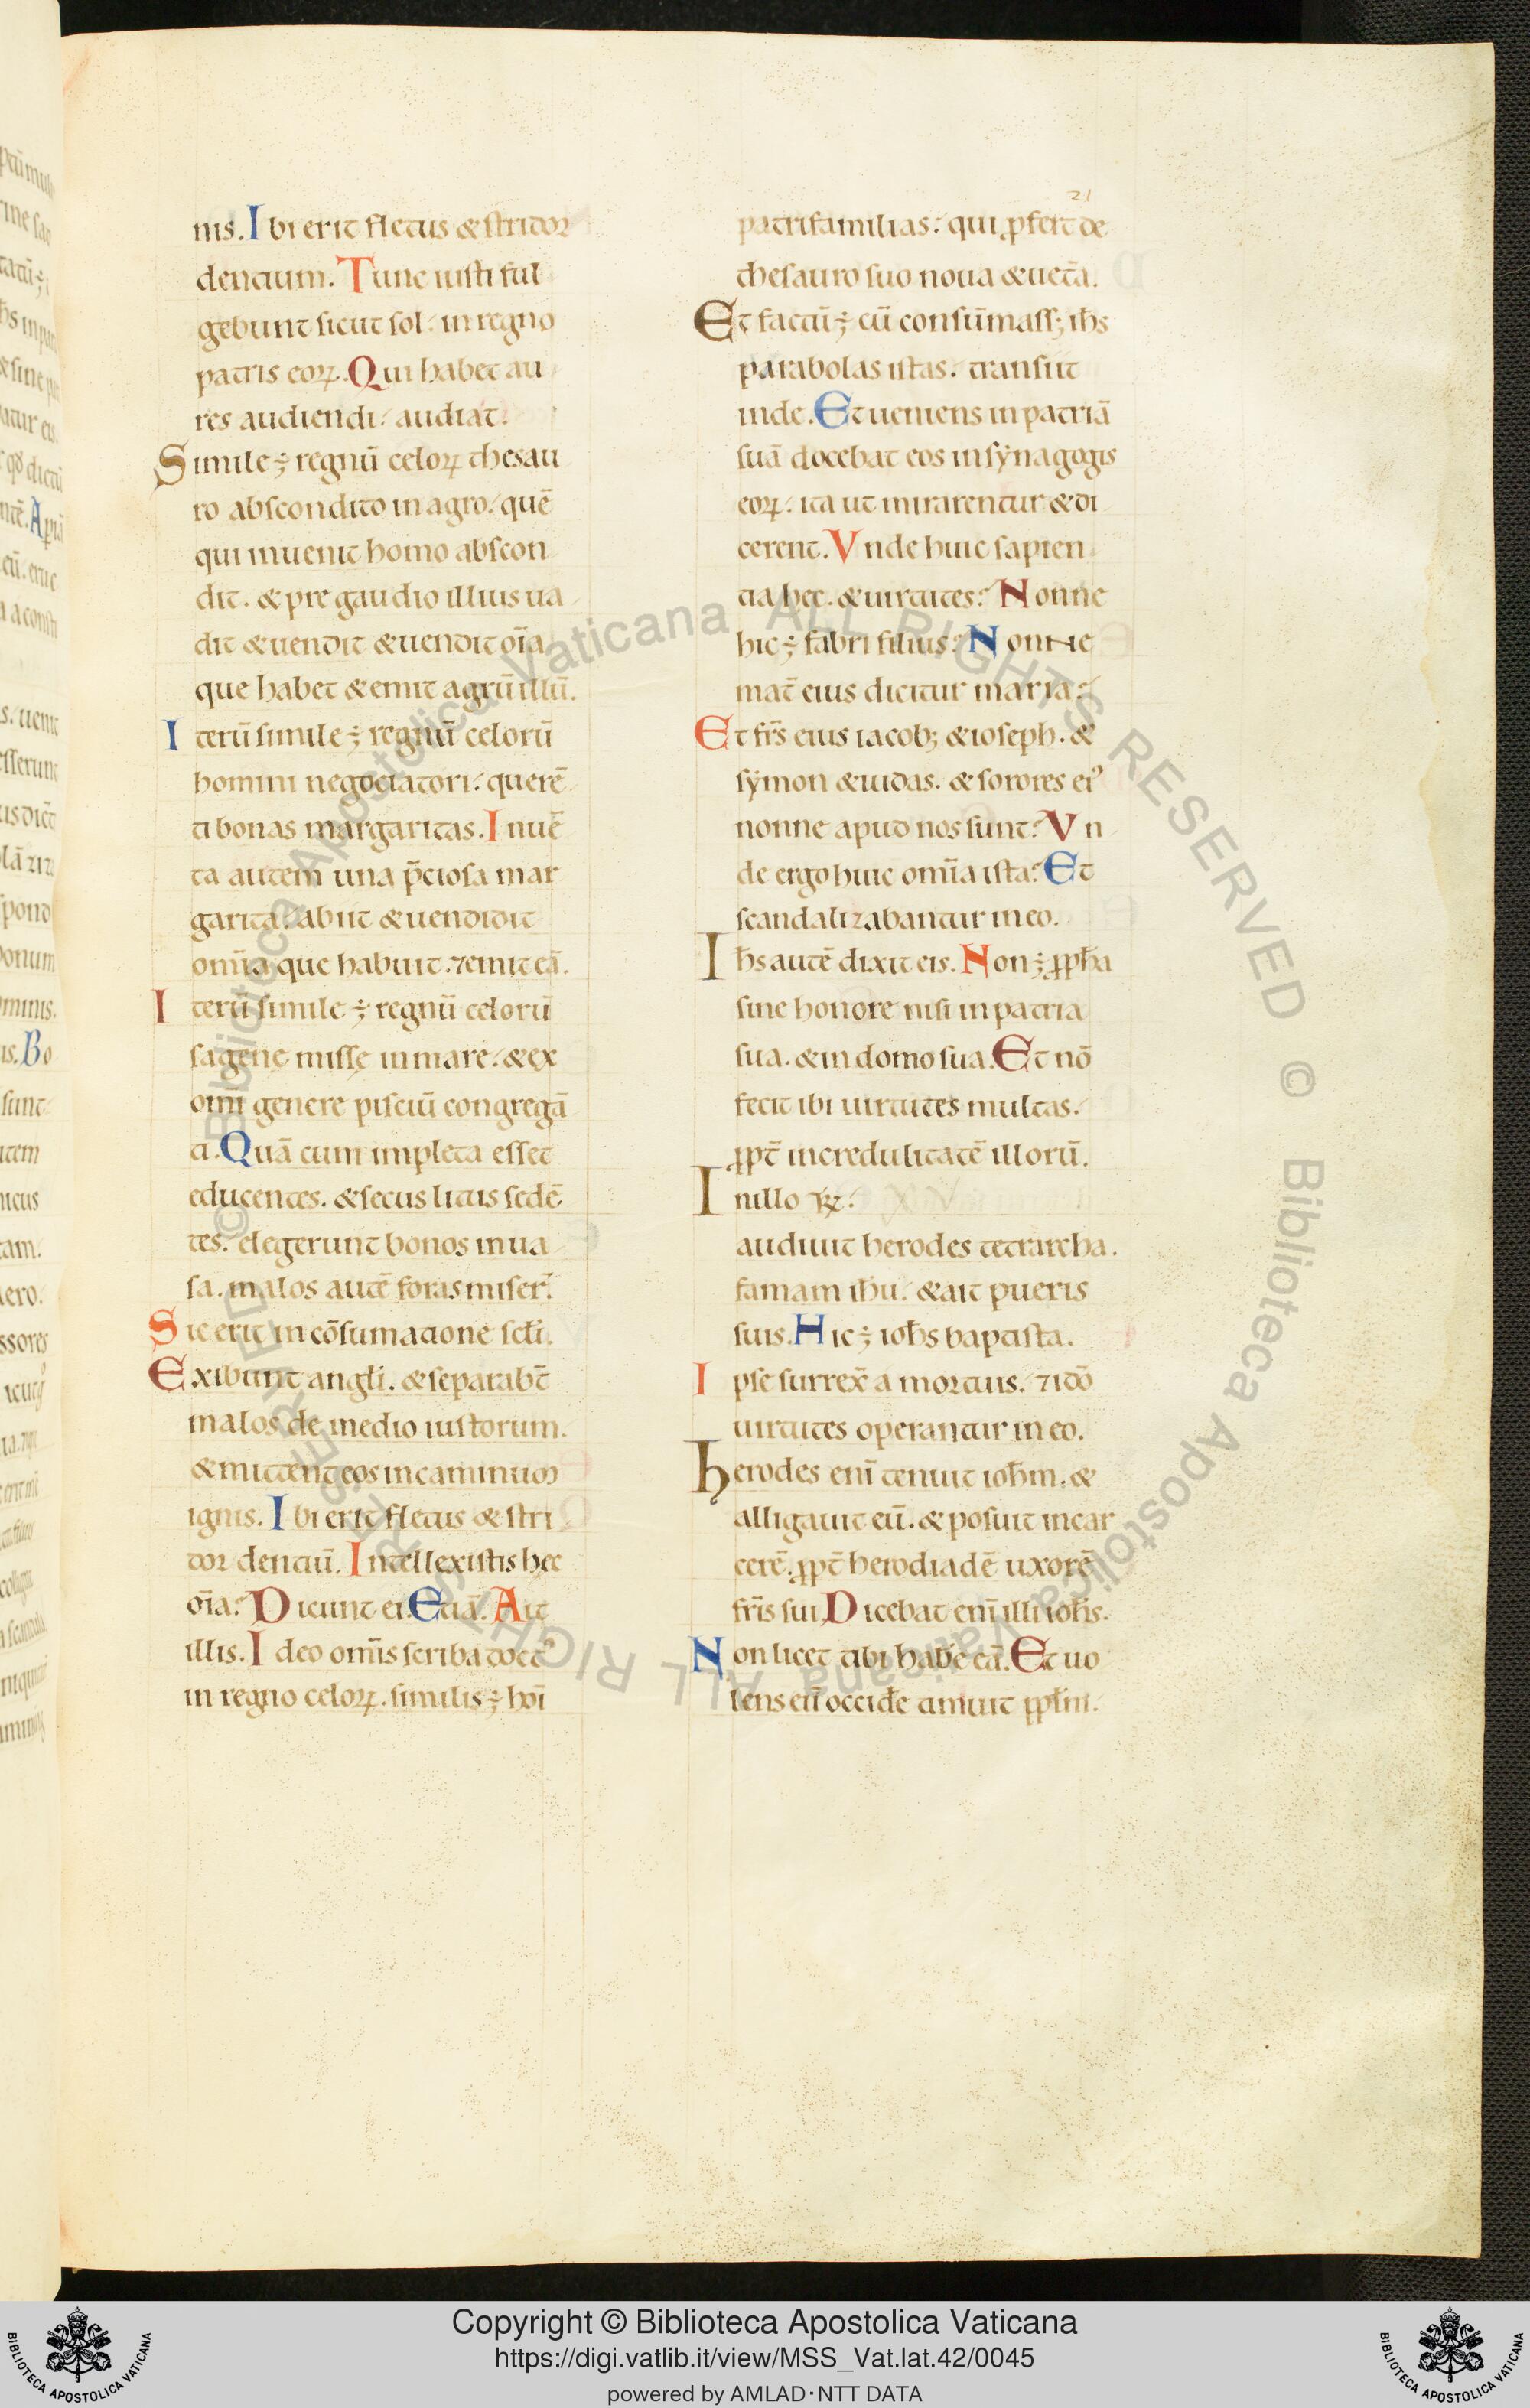 21
nis. Ibi erit fletus & stridor
dentium. Tunc iusti ful
gebunt sicut sol. in regno
patris eoꝝ. Qui habet au
res audiendi. audiat.
Simile ÷ regnū celoꝝ thesau
ro abscondito in agro. quē
qui inuenit homo abscon
dit. & pre gaudio illius ua
dit & uendit & uendit oīa
que habet & emit agrū illū.
Iterū simile ÷ regnū celorū
homini negociatori. querē
ti bonas margaritas. Inuē
ta autem una p̄ciosa mar
garita. abiit & uendidit
omīa que habuit. ⁊ emit eā.
Iterū simile ÷ regnū celorū
sagene misse in mare. & ex
omī genere pisciū congregā
ti. Quā cum impleta esset
educentes. & secus litus sedē
tes. elegerunt bonos in ua
sa. malos autē foras miser̄.
Sic erit in cōsumatione scłi.
Exibunt angłi. & separabt̄
malos de medio iustorum.
& mittent eos in caminum
ignis. Ibi erit fletus & stri
dor dentiū. Intellexistis hec
oīa? Dicunt ei. Etiā. Ait
illis. Ideo omīs scriba doctꝰ
in regno celoꝝ. similis ÷ hoī
patrifamilias. qui ꝓfert de
thesauro suo noua & uet̄a.
Et factū ÷ cū consūmass; ih̄s
parabolas istas. transiit
inde. Et ueniens in patriā
suā docebat eos in sẏnagogis
eoꝝ. ita ut mirarentur & di
cerent. Vnde huic sapien
tia hec. & uirtutes? Nonne
hic ÷ fabri filius? Nonne
mat̄ eius dicitur maria?
Et fr̄s eius iacob; & ioseph. &
sẏmon & iudas. & sorores eiꝰ
nonne apud nos sunt? Vn
de ergo huic omīa ista? Et
scandalizabantur in eo.
Ih̄s autē dixit eis. Non ÷ ꝓph̄a
sine honore nisi in patria
sua. & in domo sua. Et nō
fecit ibi uirtutes multas.
ꝓpt̄ incredulitatē illorū.
In illo
audiuit herodes tetrarcha.
famam ih̄u. & ait pueris
suis. Hic ÷ ioh̄s baptista.
Ipse surrex̄ a mortuis. ⁊ idō
uirtutes operantur in eo.
Herodes enī tenuit ioh̄m. &
alligauit eū. & posuit in car
cerē. ꝓpt̄ herodiadē uxorē
fr̄is sui. Dicebat enī illi ioh̄s.
Non licet tibi hab̄e eā. Et uo
lens eū occid̄e timuit ꝓpłm.
Copyright © Biblioteca Apostolica Vaticana
https://digi.vatlib.it/view/MSS_Vat.lat.42/0045
powered by AMLAD·NTT DATA
© Biblioteca Apostolica Vaticana ALL RIGHTS RESERVED © Biblioteca Apostolica Vaticana ALL RIGHTS RESERVED
BIBLIOTECA APOSTOLICA VATICANA
BIBLIOTECA APOSTOLICA VATICANA